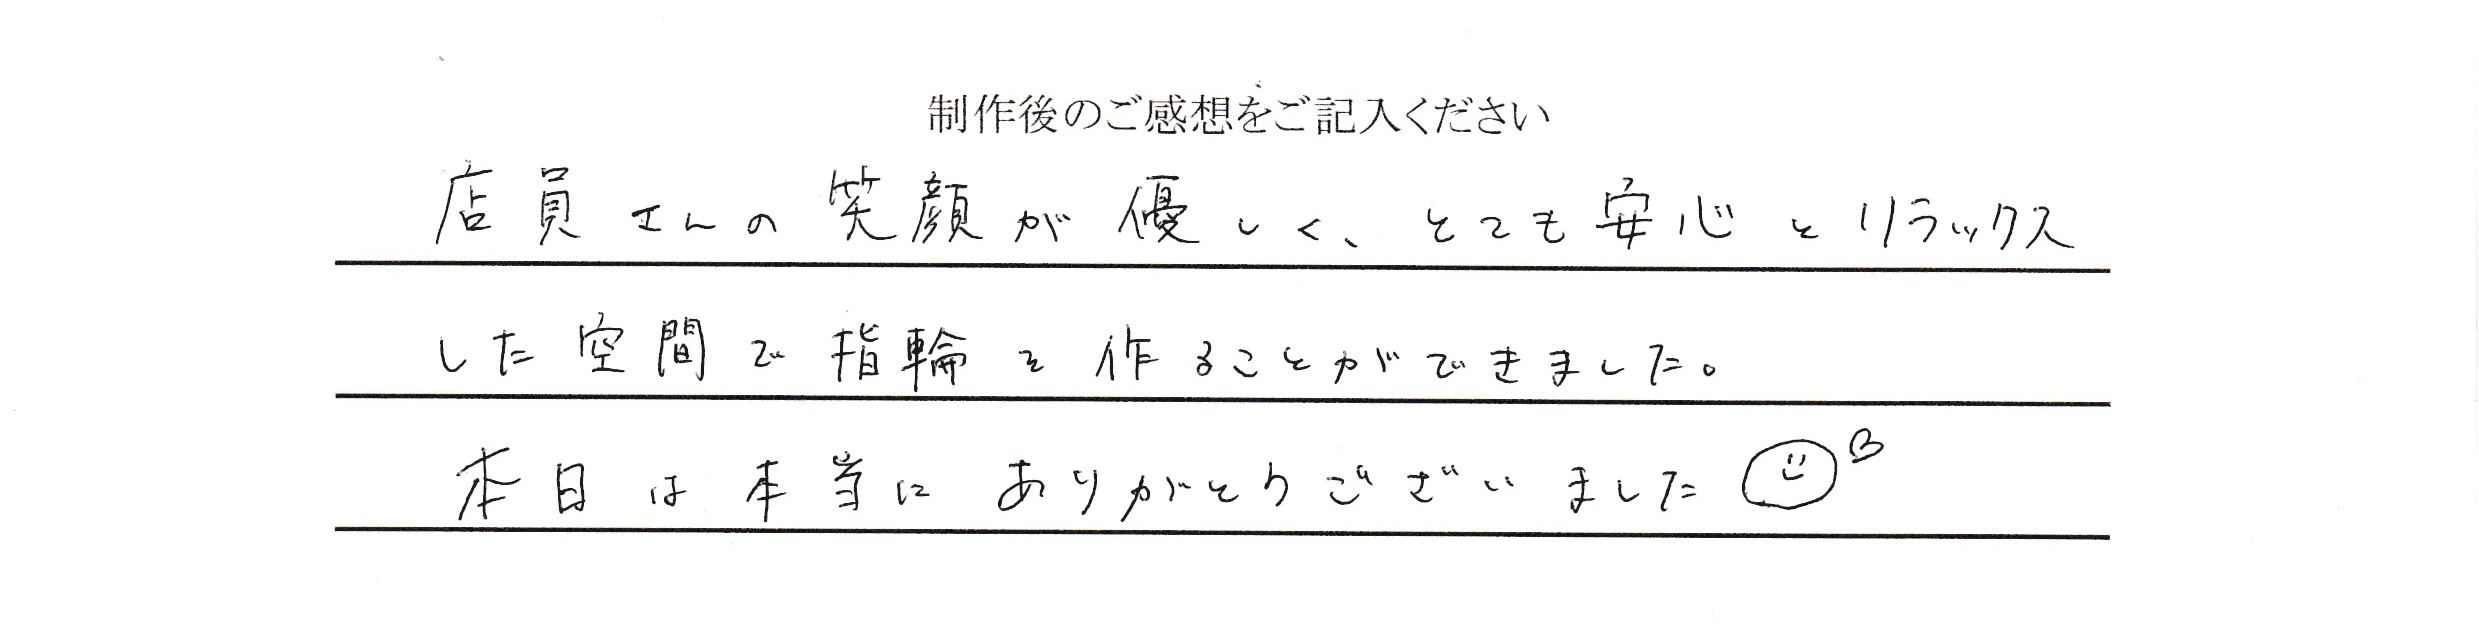 制作後のご感想をご記入ください
店員さんの笑顔が優しく、とても安心とリラックス
した空間で指輪を作ることができました。
本日は本当にありがとうございました